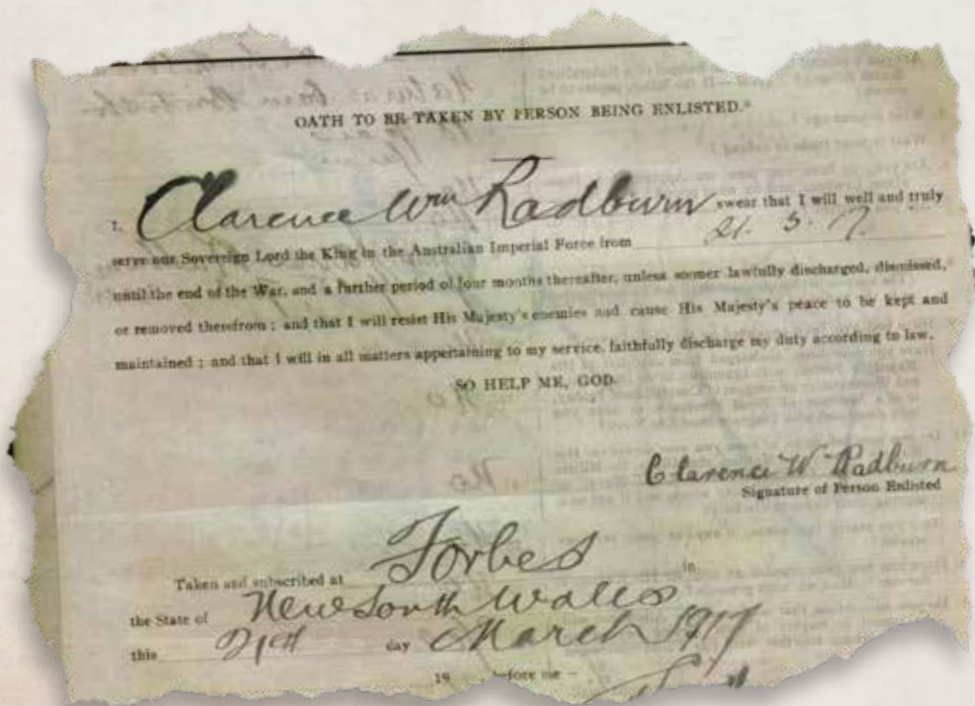 OATH TO BE TAKEN BY PERSON BEING ENLISTED.*
I, Clarence Wm Radburn swear that I will well and truly
serve our Sovereign Lord the King in the Australian Imperial Force from 21. 3. 17.
until the end of the War, and a further period of four months thereafter, unless sooner lawfully discharged, dismissed,
or removed therefrom; and that I will resist His Majesty's enemies and cause His Majesty's peace to be kept and
maintained; and that I will in all matters appertaining to my service, faithfully discharge my duty according to law.
SO HELP ME, GOD.
Clarence W. Radburn
Signature of Person Enlisted
Taken and subscribed at Forbes in
the State of New South Wales
this 21st day March 1917
19 before me—